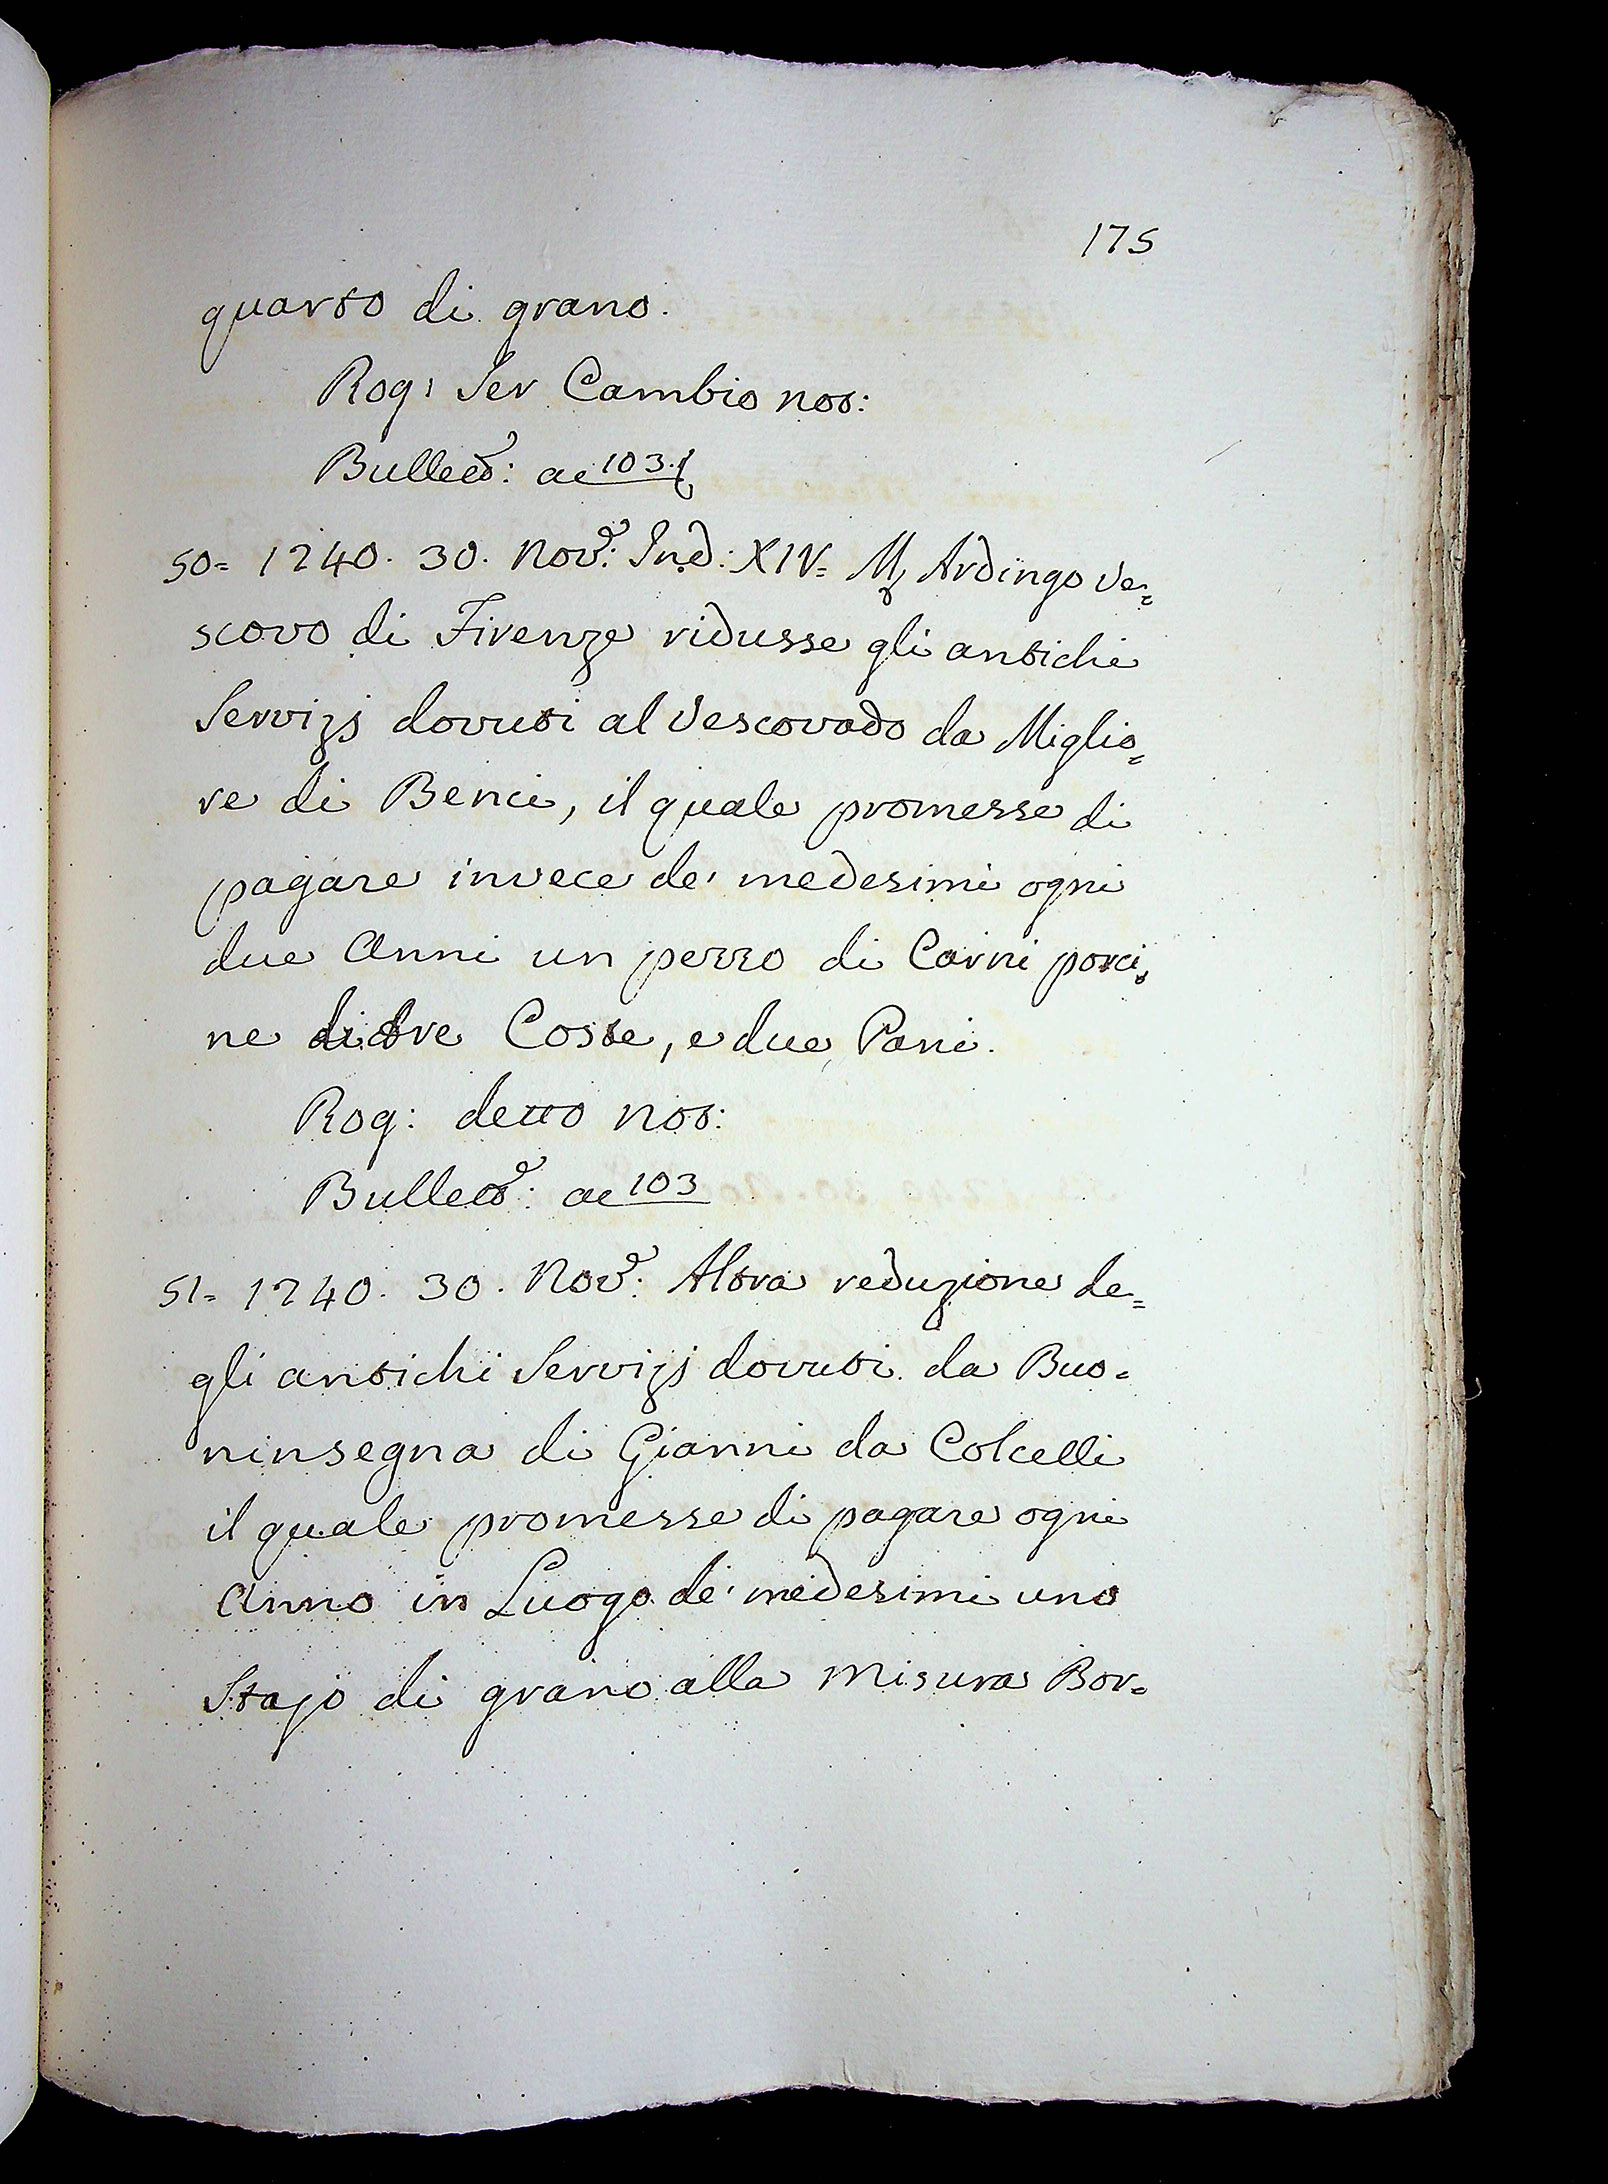 175
quarto di grano.
Rog: Ser Cambio not:
Bullett:e ac 103.
50= 1240. 30. Nov:e Ind: XIV= M. Ardingo Ve=
scovo di Firenze ridusse gli antichi
Servizj dovuti al Vescovado da Miglio=
re di Benci, il quale promesse di
pagare invece de' medesimi ogni
due Anni un pezzo di Carni porci=
ne di tre Coste, e due Pani.
Rog: detto not:
Bullett:e ac 103
51= 1240. 30. Nov:e Altra reduzione de=
gli antichi Servizj dovuti da Buo=
ninsegna di Gianni da Colcelli
il quale promesse di pagare ogni
Anno in Luogo de' medesimi uno
Stajo di grano alla Misura Bor=